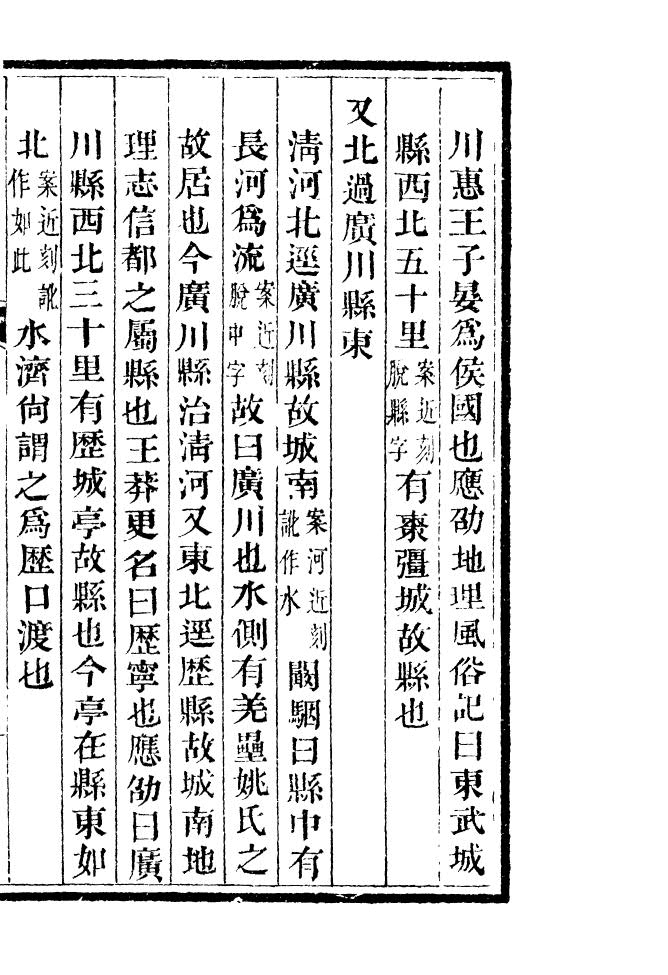 川惠王子晏爲侯國也應劭地理風俗記曰東武城
縣西北五十里案近刻脫縣字有棗彊城故縣也
又北過廣川縣東
淸河北逕廣川縣故城南案河近刻訛作水闞駰曰縣中有
長河爲流案近刻脫中字故曰廣川也水側有羌壘姚氏之
故居也今廣川縣治淸河又東北逕歷縣故城南地
理志信都之屬縣也王莽更名曰歷寧也應劭曰廣
川縣西北三十里有歷城亭故縣也今亭在縣東如
北案近刻訛作如此水濟尙謂之爲歷口渡也